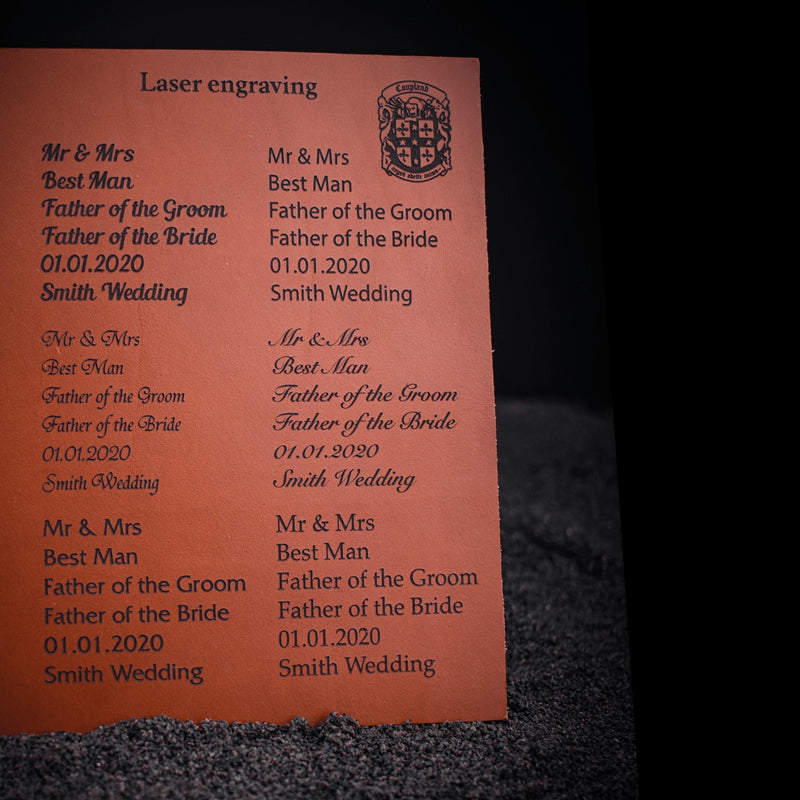 Laser engraving
Coupland
Mr & Mrs
Best Man
Father of the Groom
Father of the Bride
01.01.2020
Smith Wedding
Mr & Mrs
Best Man
Father of the Groom
Father of the Bride
01.01.2020
Smith Wedding
Mr & Mrs
Best Man
Father of the Groom
Father of the Bride
01.01.2020
Smith Wedding
Mr & Mrs
Best Man
Father of the Groom
Father of the Bride
01.01.2020
Smith Wedding
Mr & Mrs
Best Man
Father of the Groom
Father of the Bride
01.01.2020
Smith Wedding
Mr & Mrs
Best Man
Father of the Groom
Father of the Bride
01.01.2020
Smith Wedding